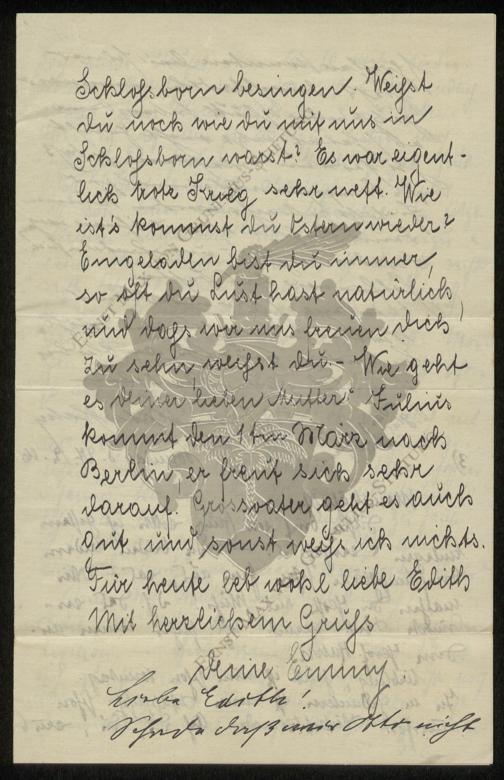 Schlossborn besingen. Weisst
du noch wie du mit uns in
Schlossborn warst? Es war eigent-
lich trotz Krieg sehr nett. Wie
ist's kommst du Ostern wieder?
Eingeladen bist du immer,
so oft du Lust hast natürlich,
und dass wir uns freuen dich
zu sehn weisst du. – Wie geht
es deiner lieben Mutter? Julius
kommt den 1ten März nach
Berlin er freut sich sehr
darauf. Grossvater geht es auch
gut und sonst weiss ich nichts.
Für heute leb wohl liebe Edith
Mit herzlichem Gruss
deine Emmy
Liebe Edith!
Schade daß nicht